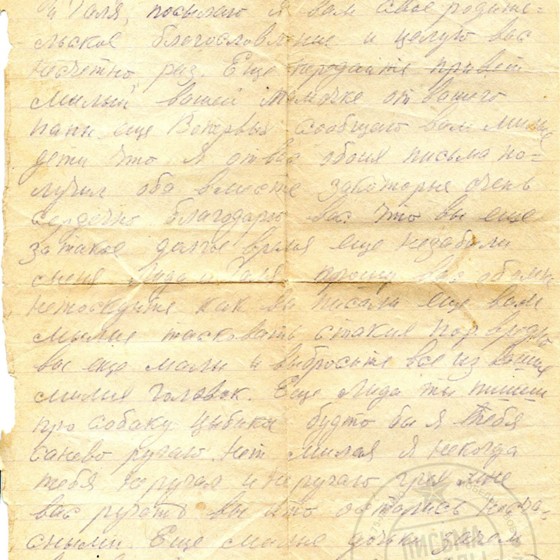 и Галя, посылаю я вам свое родите-
льское благословление и целую вас
несчетно раз. Еще передайте привет
милый вашей мамочке от вашего
папи, еще Вопервых сообщаю вам милы
дети что я от вас обоих письма по-
лучил оба вместе за которые очень
сердечно благодарю вас что вы еще
за такое долгье время еще незабыли
меня Лида и Галя прошу вас обоих
нетоскуйте как вы писали еще вам
милые тасковать стакия пор
вы еще малы и выбросьте все из ваших
милих головок. Еще Лида ты пишеш
про собаку цыбика будто бы я тебя
занево ругаю нет милая я некогда
тебя неругал и неругаю грех мне
вас ругать вы и то остались
сными. Еще милые
ПИСЬМА